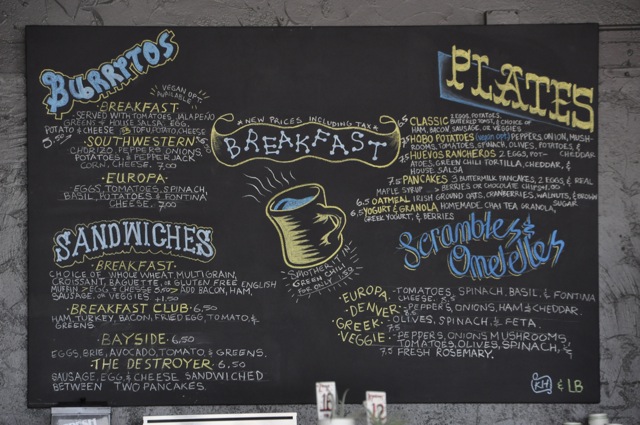 BURRITOS
VEGAN OPT.
AVAILABLE
·BREAKFAST·
SERVED WITH TOMATOES, JALAPEÑO
GREENS & HOUSE SALSA, EGG,
POTATO & CHEESE TOFU, POTATO, CHEESE
SOUTHWESTERN
CHORIZO, PEPPERS, ONIONS,
POTATOES & PEPPERJACK
CORN, CHEESE. 7.00
·EUROPA·
EGGS, TOMATOES, SPINACH,
BASIL, POTATOES & FONTINA
CHEESE. 7.00
SANDWICHES
·BREAKFAST·
CHOICE OF WHOLE WHEAT, MULTIGRAIN,
CROISSANT, BAGUETTE, OR GLUTEN FREE ENGLISH
MUFFIN EGG & CHEESE ADD BACON, HAM,
SAUSAGE, OR VEGGIES +1.50
·BREAKFAST CLUB· 6.50
HAM, TURKEY, BACON, FRIED EGG, TOMATO, &
GREENS.
BAYSIDE· 6.50
EGGS, BRIE, AVOCADO, TOMATO & GREENS.
·THE DESTROYER· 6.50
SAUSAGE, EGG, & CHEESE SANDWICHED
BETWEEN TWO PANCAKES.
*NEW PRICES INCLUDING TAX*
BREAKFAST
SMOTHERED IN
GREEN CHILI
FOR ONLY 1.50
PLATES
6.5 CLASSIC 2 EGGS, POTATOES,
BUTTERED TOAST, & CHOICE OF
HAM, BACON, SAUSAGE, OR VEGGIES
7.5 HOBO POTATOES (vegan opt.) PEPPERS, ONION, MUSH-
ROOMS, TOMATOES, SPINACH, OLIVES, POTATOES, &
CHEDDAR
7.5 HUEVOS RANCHEROS 2 EGGS, POT-
ATOES, GREEN CHILI, TORTILLA, CHEDDAR, &
HOUSE SALSA
7.5 PANCAKES 3 BUTTERMILK PANCAKES, 2 EGGS, & REAL
MAPLE SYRUP BERRIES OR CHOCOLATE CHIPS
6.5 OATMEAL IRISH GROUND OATS, CRANBERRIES, WALNUTS, & BROWN
SUGAR
6.5 YOGURT & GRANOLA HOMEMADE CHAI TEA GRANOLA,
GREEK YOGURT, & BERRIES
Scrambles &
Omelettes
EUROPA - TOMATOES, SPINACH, BASIL, & FONTINA
CHEESE. 8.5
DENVER - PEPPERS, ONIONS, HAM & CHEDDAR.
8.5
GREEK - OLIVES, SPINACH, & FETA.
7.5
VEGGIE - PEPPERS, ONIONS, MUSHROOMS,
TOMATOES, OLIVES, SPINACH, &
7.5 FRESH ROSEMARY.
KH & LB
16
12